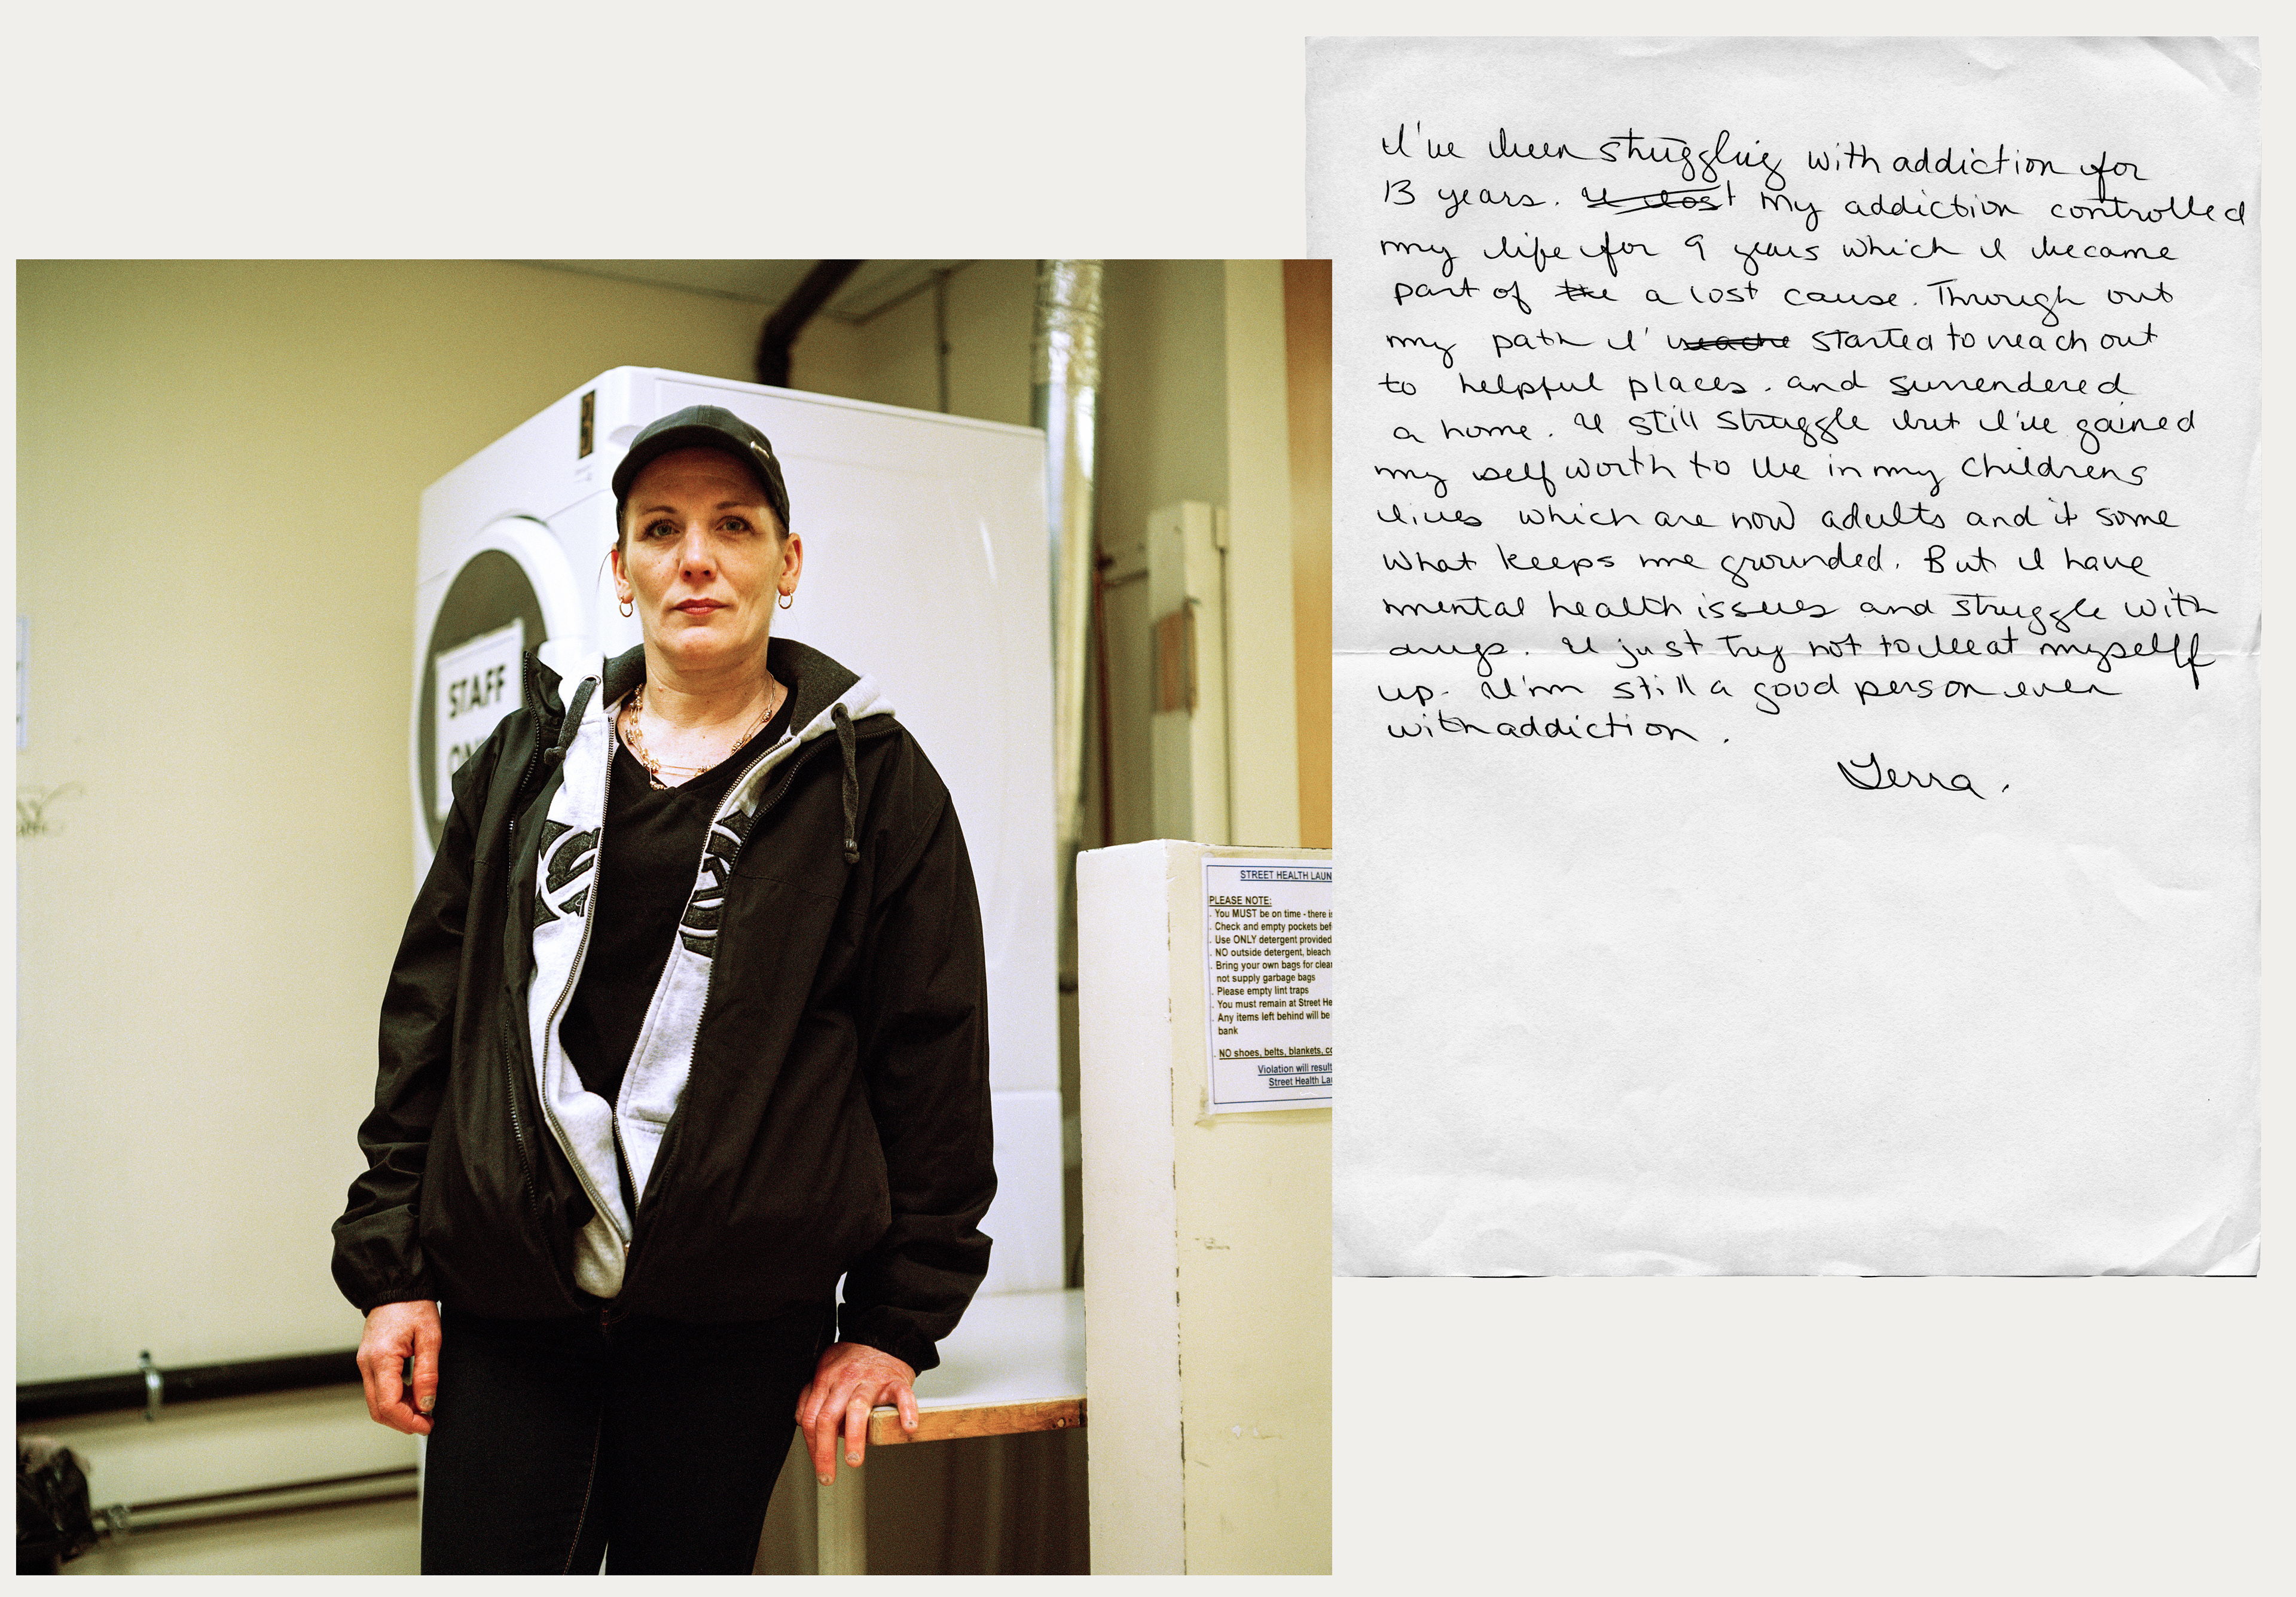 I've been struggling with addiction for
13 years. I lost my addiction controlled
my life for 9 years which I became
part of the a lost cause. Through out
my path I' reache started to reach out
to helpful places. and surrendered
a home. I still struggle but I've gained
my self worth to be in my childrens
lives which are now adults and it some
what keeps me grounded. But I have
mental health issues and struggle with
drugs. I just try not to beat myselff
up. I'm still a good person even
with addiction.
Terra.
STAFF
STREET HEALTH LAUN
PLEASE NOTE:
. You MUST be on time - there is
. Check and empty pockets bef
. Use ONLY detergent provided
. NO outside detergent, bleach
. Bring your own bags for clea
not supply garbage bags
. Please empty lint traps
. You must remain at Street He
. Any items left behind will be
bank
. NO shoes, belts, blankets, co
Violation will result
Street Health Lau